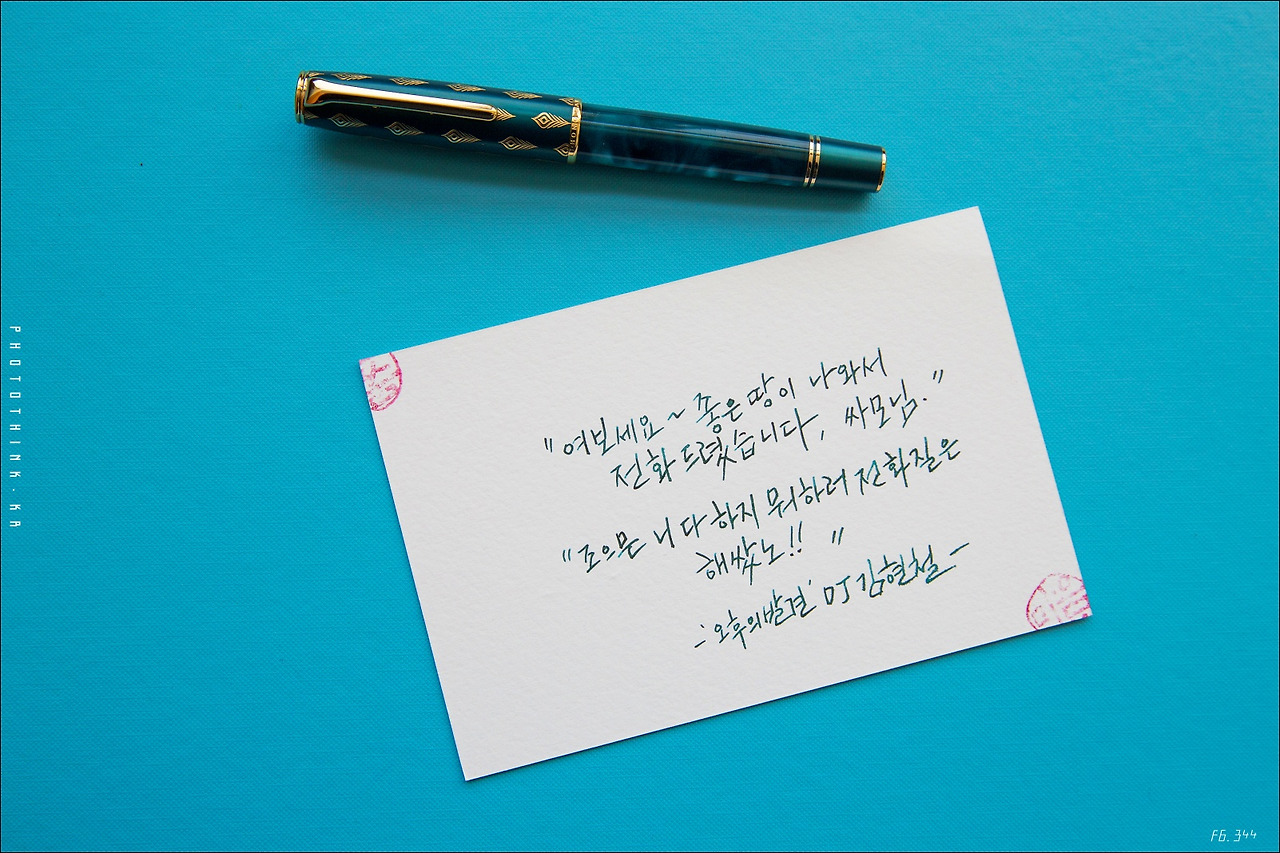 "여보세요~ 좋은 땅이 나와서
전화 드렸습니다, 싸모님."
"조으믄 니 다 하지 뭐하러 전화질은
해쌌노!! "
-'오후의발견' DJ 김현철-
PHOTOTHINK.KR
FG. 344